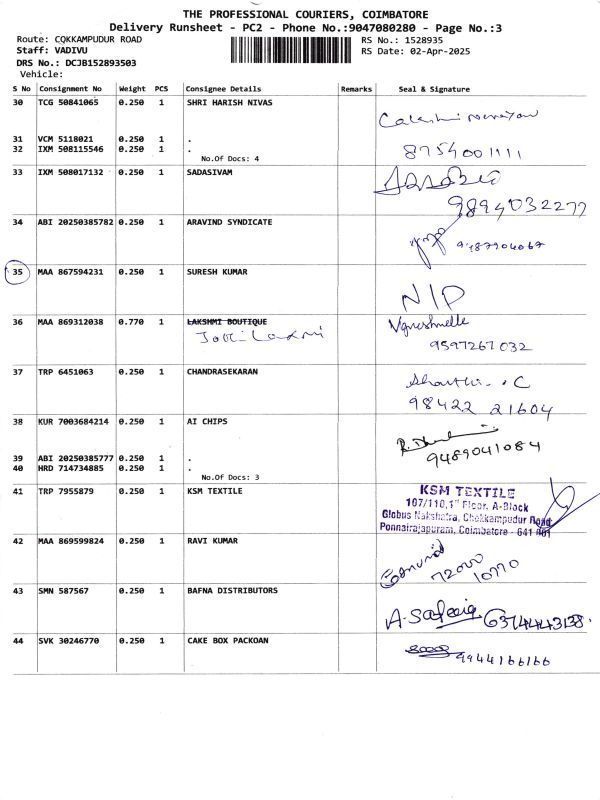 THE PROFESSIONAL COURIERS, COIMBATORE
Delivery Runsheet - PC2 - Phone No.:9047080280 - Page No.:3
Route: CQKKAMPUDUR ROAD
RS No.: 1528935
Staff: VADIVU
RS Date: 02-Apr-2025
DRS No.: DCJB152893503
Vehicle:
S No Consignment No Weight PCS Consignee Details Remarks Seal & Signature
30 TCG 50841065 0.250 1 SHRI HARISH NIVAS
31 VCM 5118021 0.250 1 .
32 IXM 508115546 0.250 1 .
8754001111
No.Of Docs: 4
33 IXM 508017132 0.250 1 SADASIVAM
9894032277
34 ABI 20250385782 0.250 1 ARAVIND SYNDICATE
9487904067
35 MAA 867594231 0.250 1 SURESH KUMAR
N/P
36 MAA 869312038 0.770 1 LAKSHMI BOUTIQUE
9597267032
37 TRP 6451063 0.250 1 CHANDRASEKARAN
98422 21604
38 KUR 7003684214 0.250 1 AI CHIPS
9489041084
39 ABI 20250385777 0.250 1 .
40 HRD 714734885 0.250 1 .
No.Of Docs: 3
41 TRP 7955879 0.250 1 KSM TEXTILE
KSM TEXTILE
107/110,1st Floor, A-Block
Globus Nakshatra, Chokkampudur Road
Ponnairajapuram, Coimbatore - 641 001
42 MAA 869599824 0.250 1 RAVI KUMAR
72000
10770
43 SMN 587567 0.250 1 BAFNA DISTRIBUTORS
6374443138.
44 SVK 30246770 0.250 1 CAKE BOX PACKOAN
9944166166